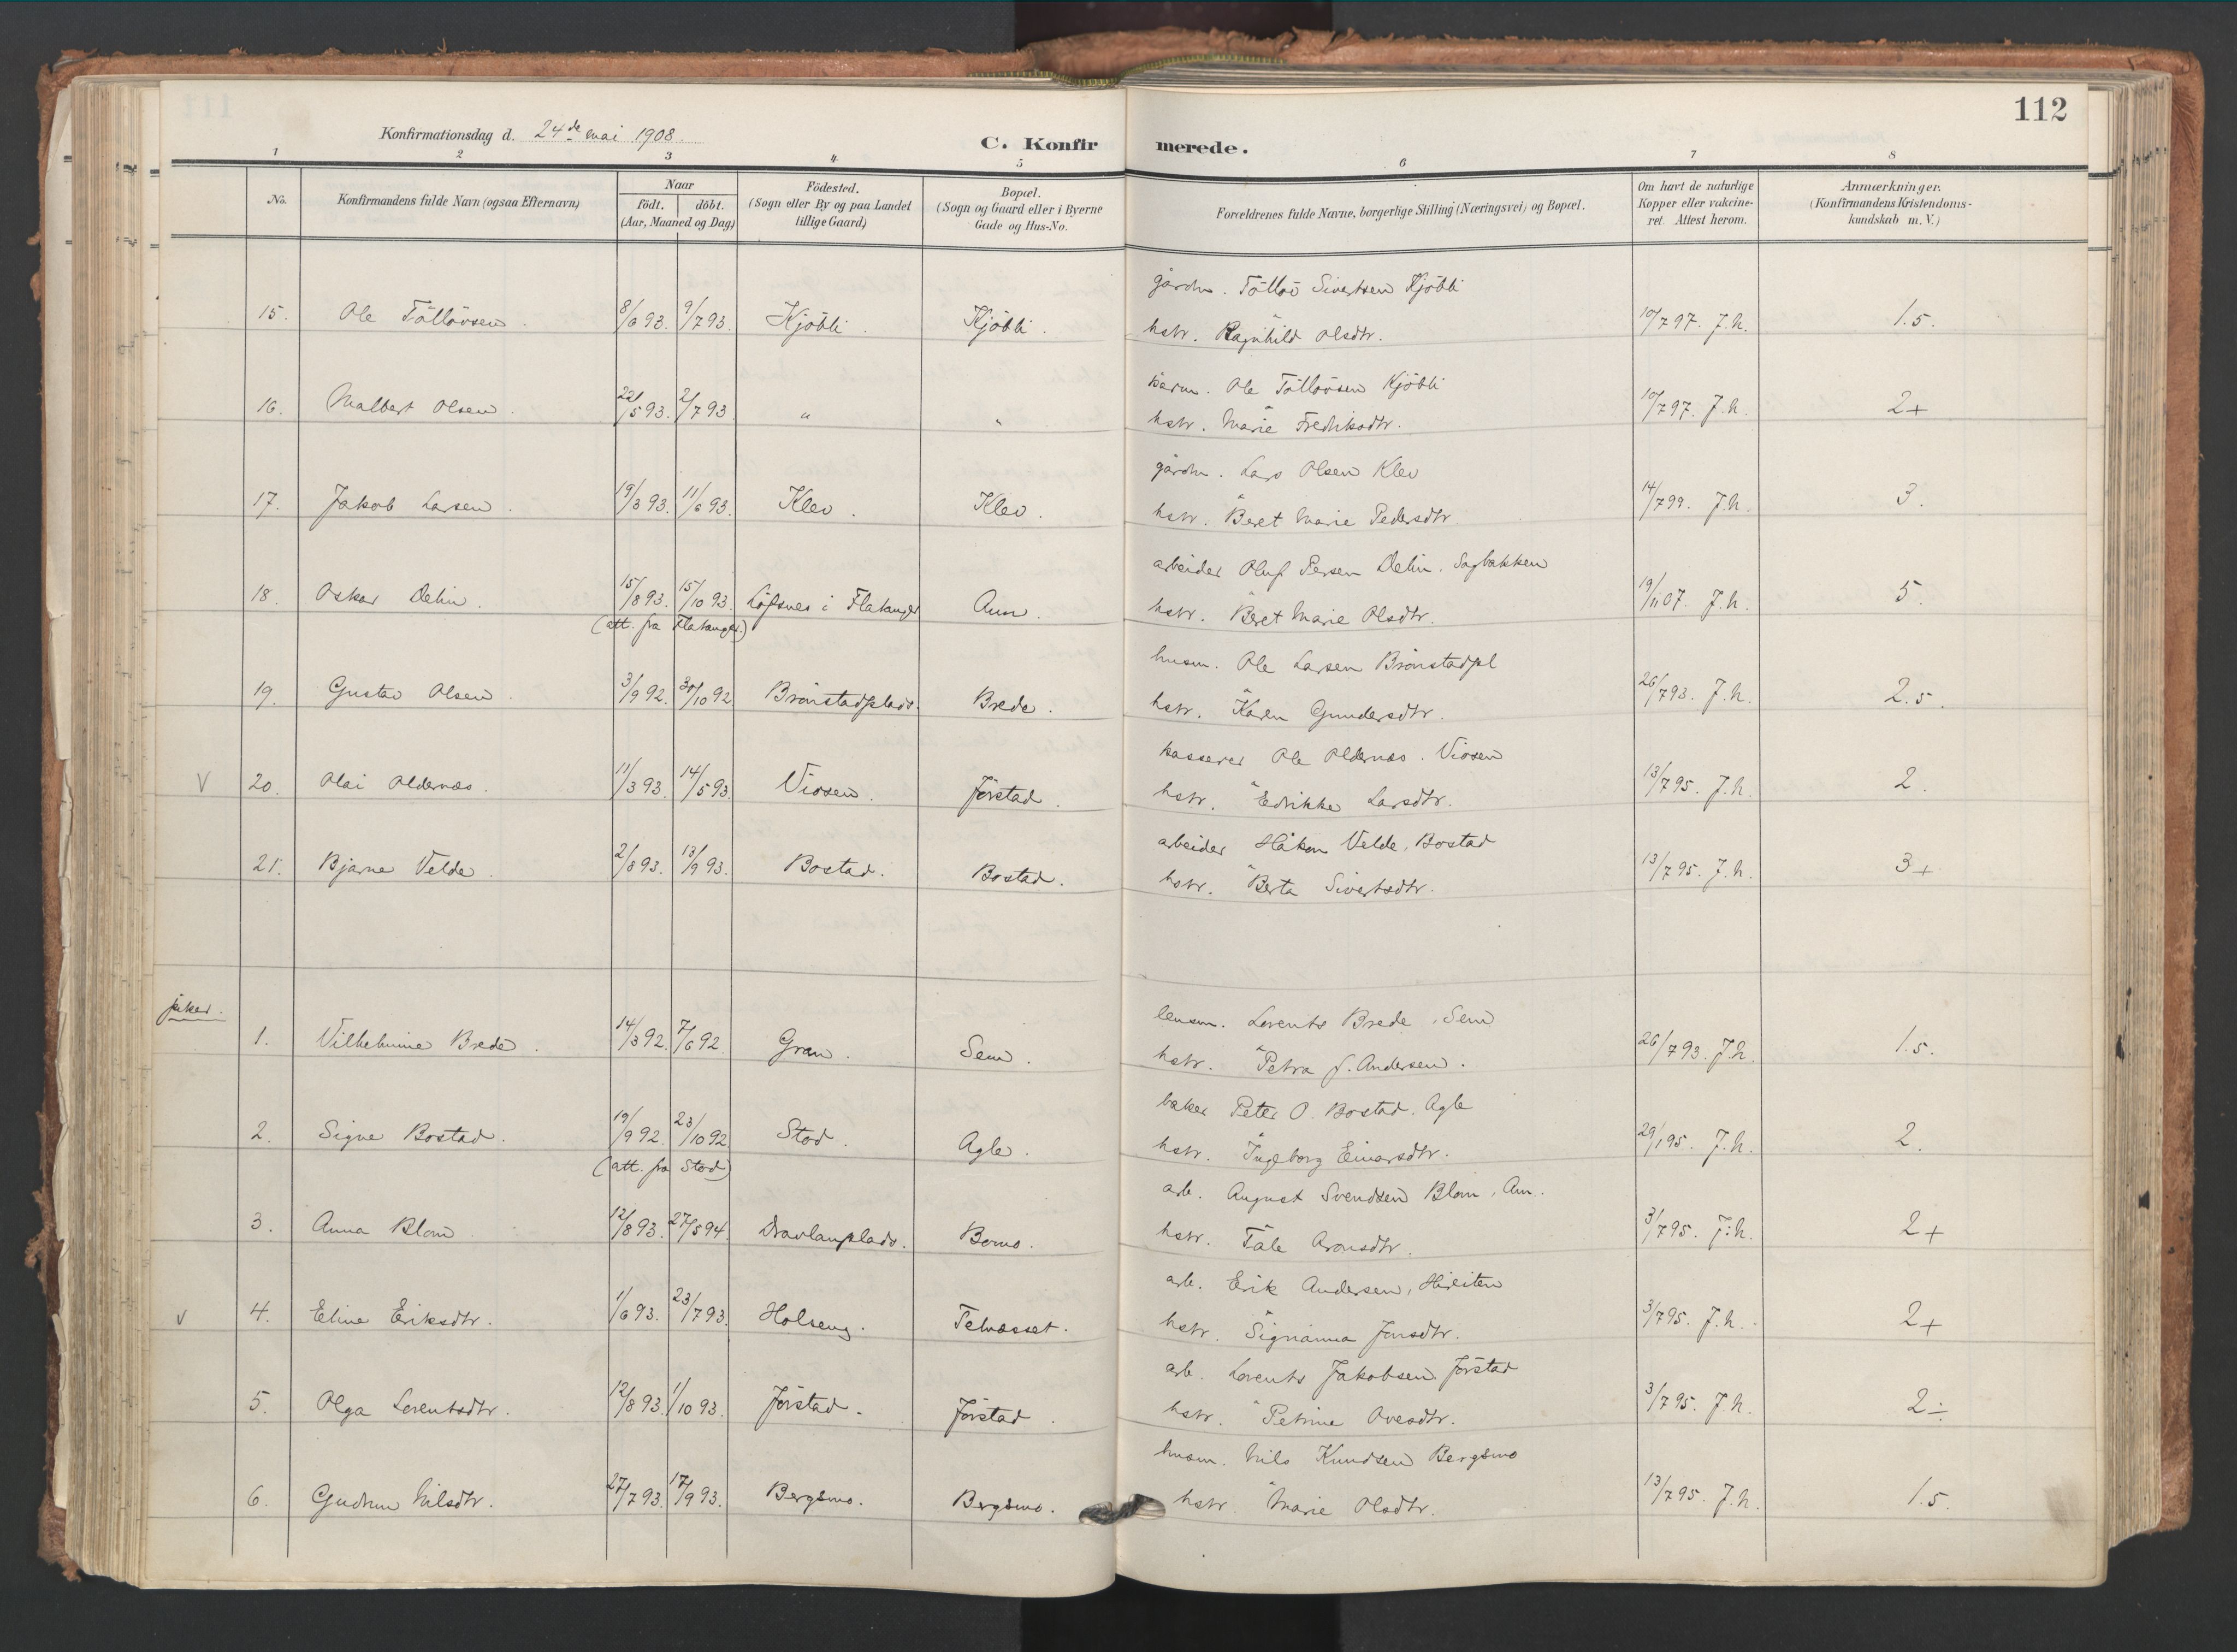 112
Konfirmationsdag d. 24de mai 1908.
C. Konfirmerede.
1 2 3 4 5 6 7 8
No.
Konfirmandens fulde Navn (ogsaa Efternavn)
Naar
födt. döbt.
(Aar, Maaned og Dag)
Födested.
(Sogn eller By og paa Landet
tillige Gaard)
Bopæl.
(Sogn og Gaard eller i Byerne
Gade og Hus-No.
Forældrenes fulde Navne, borgerlige Stilling (Næringsvei) og Bopæl.
Om havt de naturlige
Kopper eller vakcine-
ret. Attest herom.
Anmærkninger.
(Konfirmandens Kristendoms-
kundskab m. V.)
gårdm. Tölløv Sivertsen Kjöbli
15. Ole Töllövsen. 8/6 93. 9/7 93. Kjöbli. Kjöbli. hstr. Ragnhild Olsdtr. 10/7 97. J.N. 1.5.
Ole Töllövsen Kjöbli
16. Malbert Olsen. 22/5 93. 2/7 93. " " hstr. Marie Fredriksdtr. 10/7 97. J.N. 2+
gårdm. Lars Olsen Klev
17. Jakob Larsen. 19/3 93. 11/6 93. Klev. Klev. hstr. Beret Marie Pedersdtr. 14/7 99. J.N. 3.
arbeider Oluf Persen Delin. Sagbakken
18. Oskar Delin. 15/8 93. 15/10 93. Löfsnes i Flatanger Aun. hstr. Beret Marie Olsdtr. 19/11 07. J.N. 5.
(att. fra Flatanger.)
husm. Ole Larsen Brönstadpl
19. Gustav Olsen. 3/9 92. 30/10 92 Brönstadplads. Brede. hstr. Karen Gundersdtr. 26/7 93. J.N. 2.5.
kasserer Ole Oldernæs. Viosen
V 20. Olai Oldernæs. 11/3 93. 14/5 93. Viosen. Jörstad. hstr. Edrikke Larsdtr. 13/7 95. J.N. 2.
arbeider Håkon Velde, Bostad
21. Bjarne Velde. 2/8 93. 13/9 93. Bostad. Bostad. hstr. Berta Sivertsdtr. 13/7 95. J.N. 3+
piker.
lensm. Lorents Brede, Sem
1. Vilhelmine Brede. 14/3 92. 7/6 92. Gran. Sem. hstr. Petra J. Andersen. 26/7 93. J.N. 1.5.
baker Peter O. Bostad. Agle
2. Signe Bostad. 19/9 92. 23/10 92 Stod. Agle. hstr. Ingeborg Einarsdtr. 29/1 95. J.N. 2.
(att. fra Stod)
arb. August Svendsen Blom, Aun.
3. Anna Blom 12/8 93. 27/5 94. Dravlanplads. Bomo. hstr. Tale Aronsdtr. 3/7 95. J.N. 2+
arb. Erik Andersen,
V 4. Eline Eriksdtr. 1/6 93. 23/7 93. Holseng. Telnesset. hstr. Signanna Jonsdtr. 3/7 95. J.N. 2+
arb. Lorents Jakobsen Jörstad
5. Olga Lorentsdtr. 12/8 93. 1/10 93. Jörstad. Jörstad. hstr. Petrine Ovesdtr. 3/7 95. J.N. 2÷
husm. Nils Knudsen Bergsmo
6. Gudrun Nilsdtr. 27/7 93. 17/9 93. Bergsmo. Bergsmo. hstr. Marie Olsdtr. 13/7 95. J.N. 1.5.